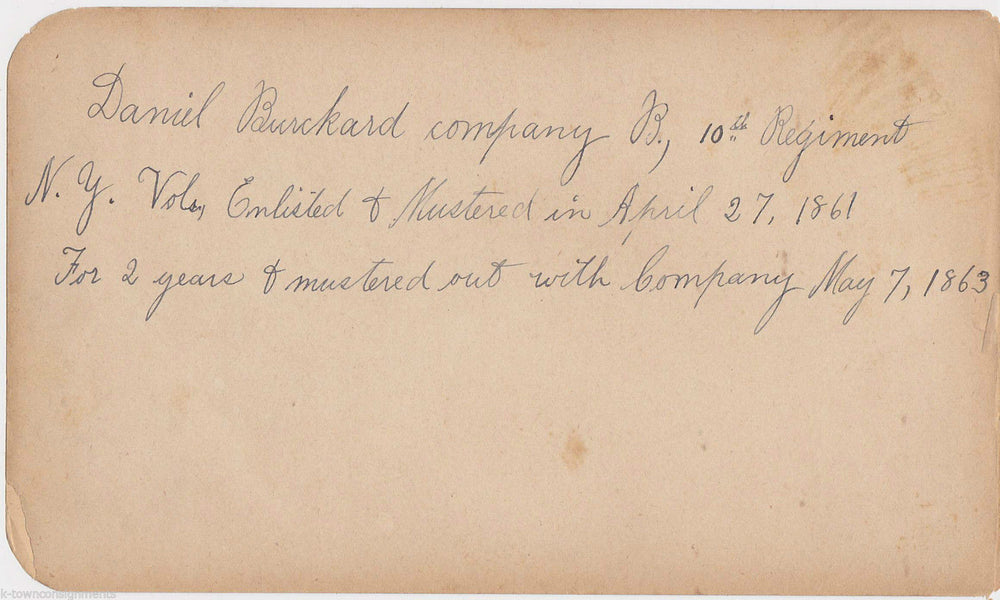 Daniel Burckard company B., 10th Regiment
N. Y. Vols, Enlisted & Mustered in April 27, 1861
For 2 years & mustered out with Company May 7, 1863
k-townconsignments